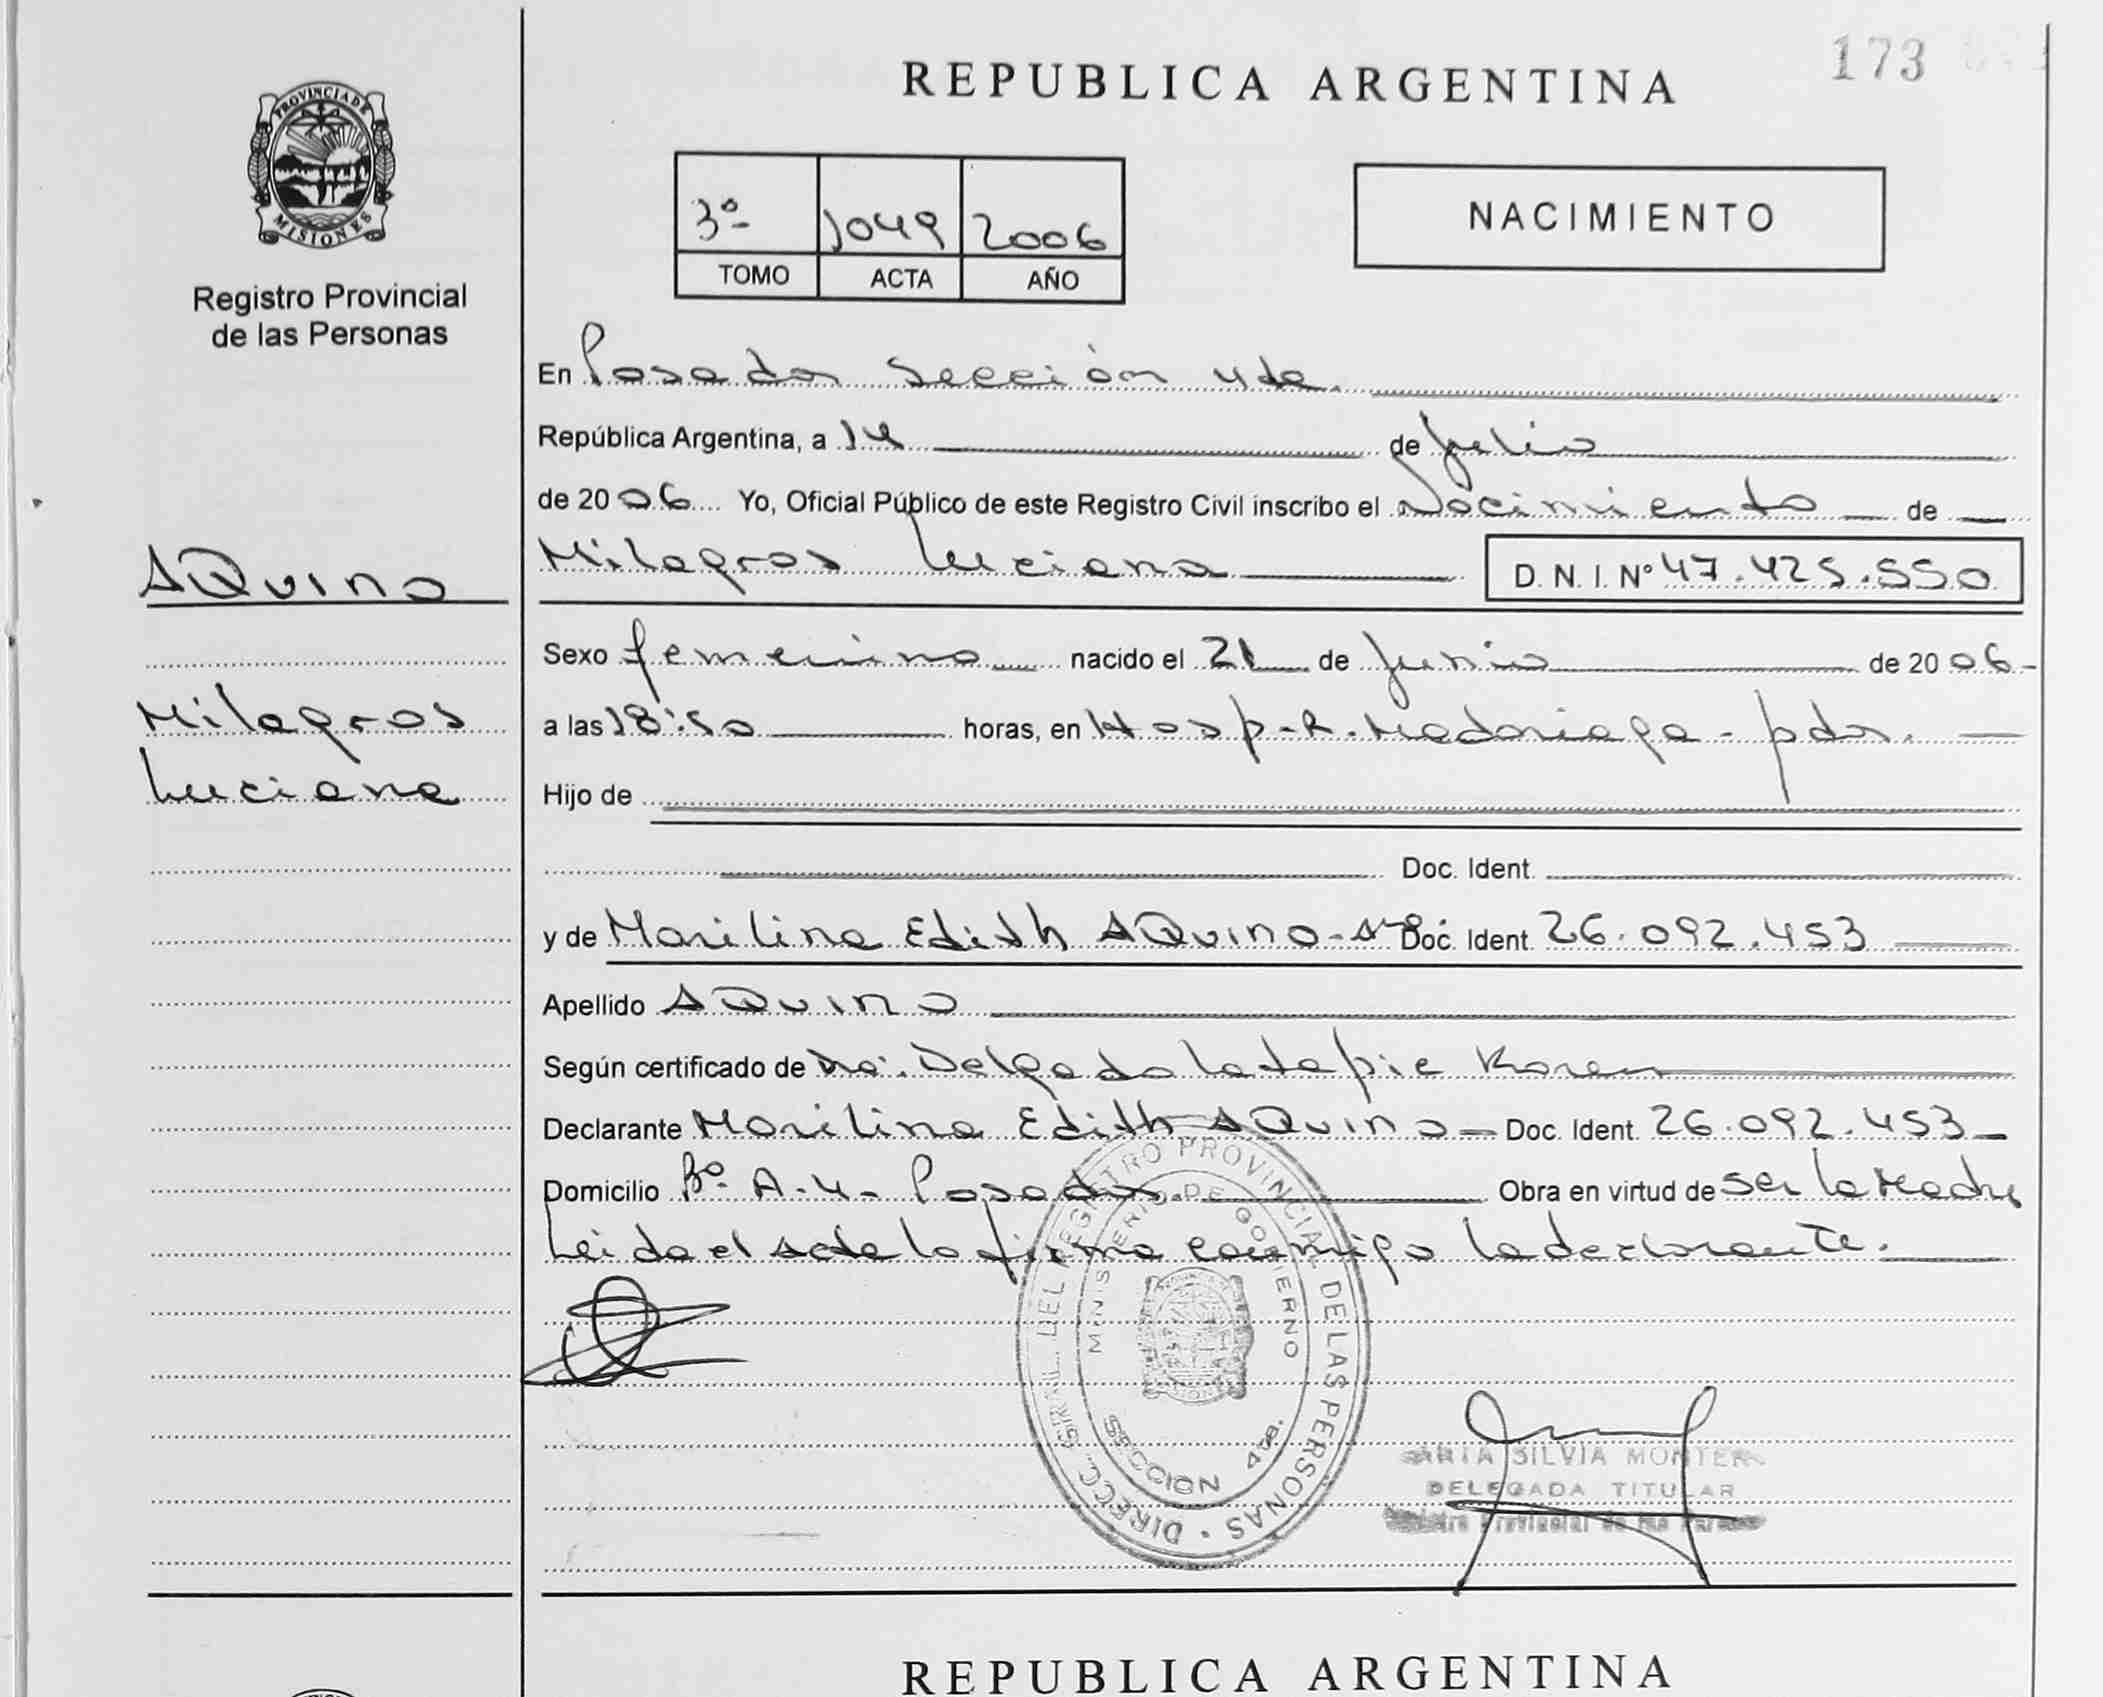 173
REPUBLICA ARGENTINA
PROVINCIA DE
MISIONES
Registro Provincial
de las Personas
3º 1049 2006
TOMO ACTA AÑO
NACIMIENTO
En Posadas Sección 4ta.
República Argentina, a 14 de Julio
de 2006 Yo, Oficial Público de este Registro Civil inscribo el Nacimiento de
AQuino
Milagros Luciana D. N. I. Nº 47.425.550
Sexo femenino nacido el 21 de Junio de 2006
Milagros
a las 18:50 horas, en Hosp. R. Madariaga - pdas.
Luciana
Hijo de
Doc. Ident.
y de Marilina Edith AQuino - Doc. Ident. 26.092.453
Apellido AQuino
Según certificado de Delgado Latapie Karen
Declarante Marilina Edith AQuino Doc. Ident. 26.092.453
Domicilio Bº A-4 - Posadas. Obra en virtud de Ser la Madre
Leida el Acta la firma conmigo la declarante.
DIRECC. GRAL. DEL REGISTRO PROVINCIAL DE LAS PERSONAS
MINISTERIO DE GOBIERNO
SECCION 4ta.
MARIA SILVIA MONTERO
DELEGADA TITULAR
Registro Provincial de las Personas
REPUBLICA ARGENTINA